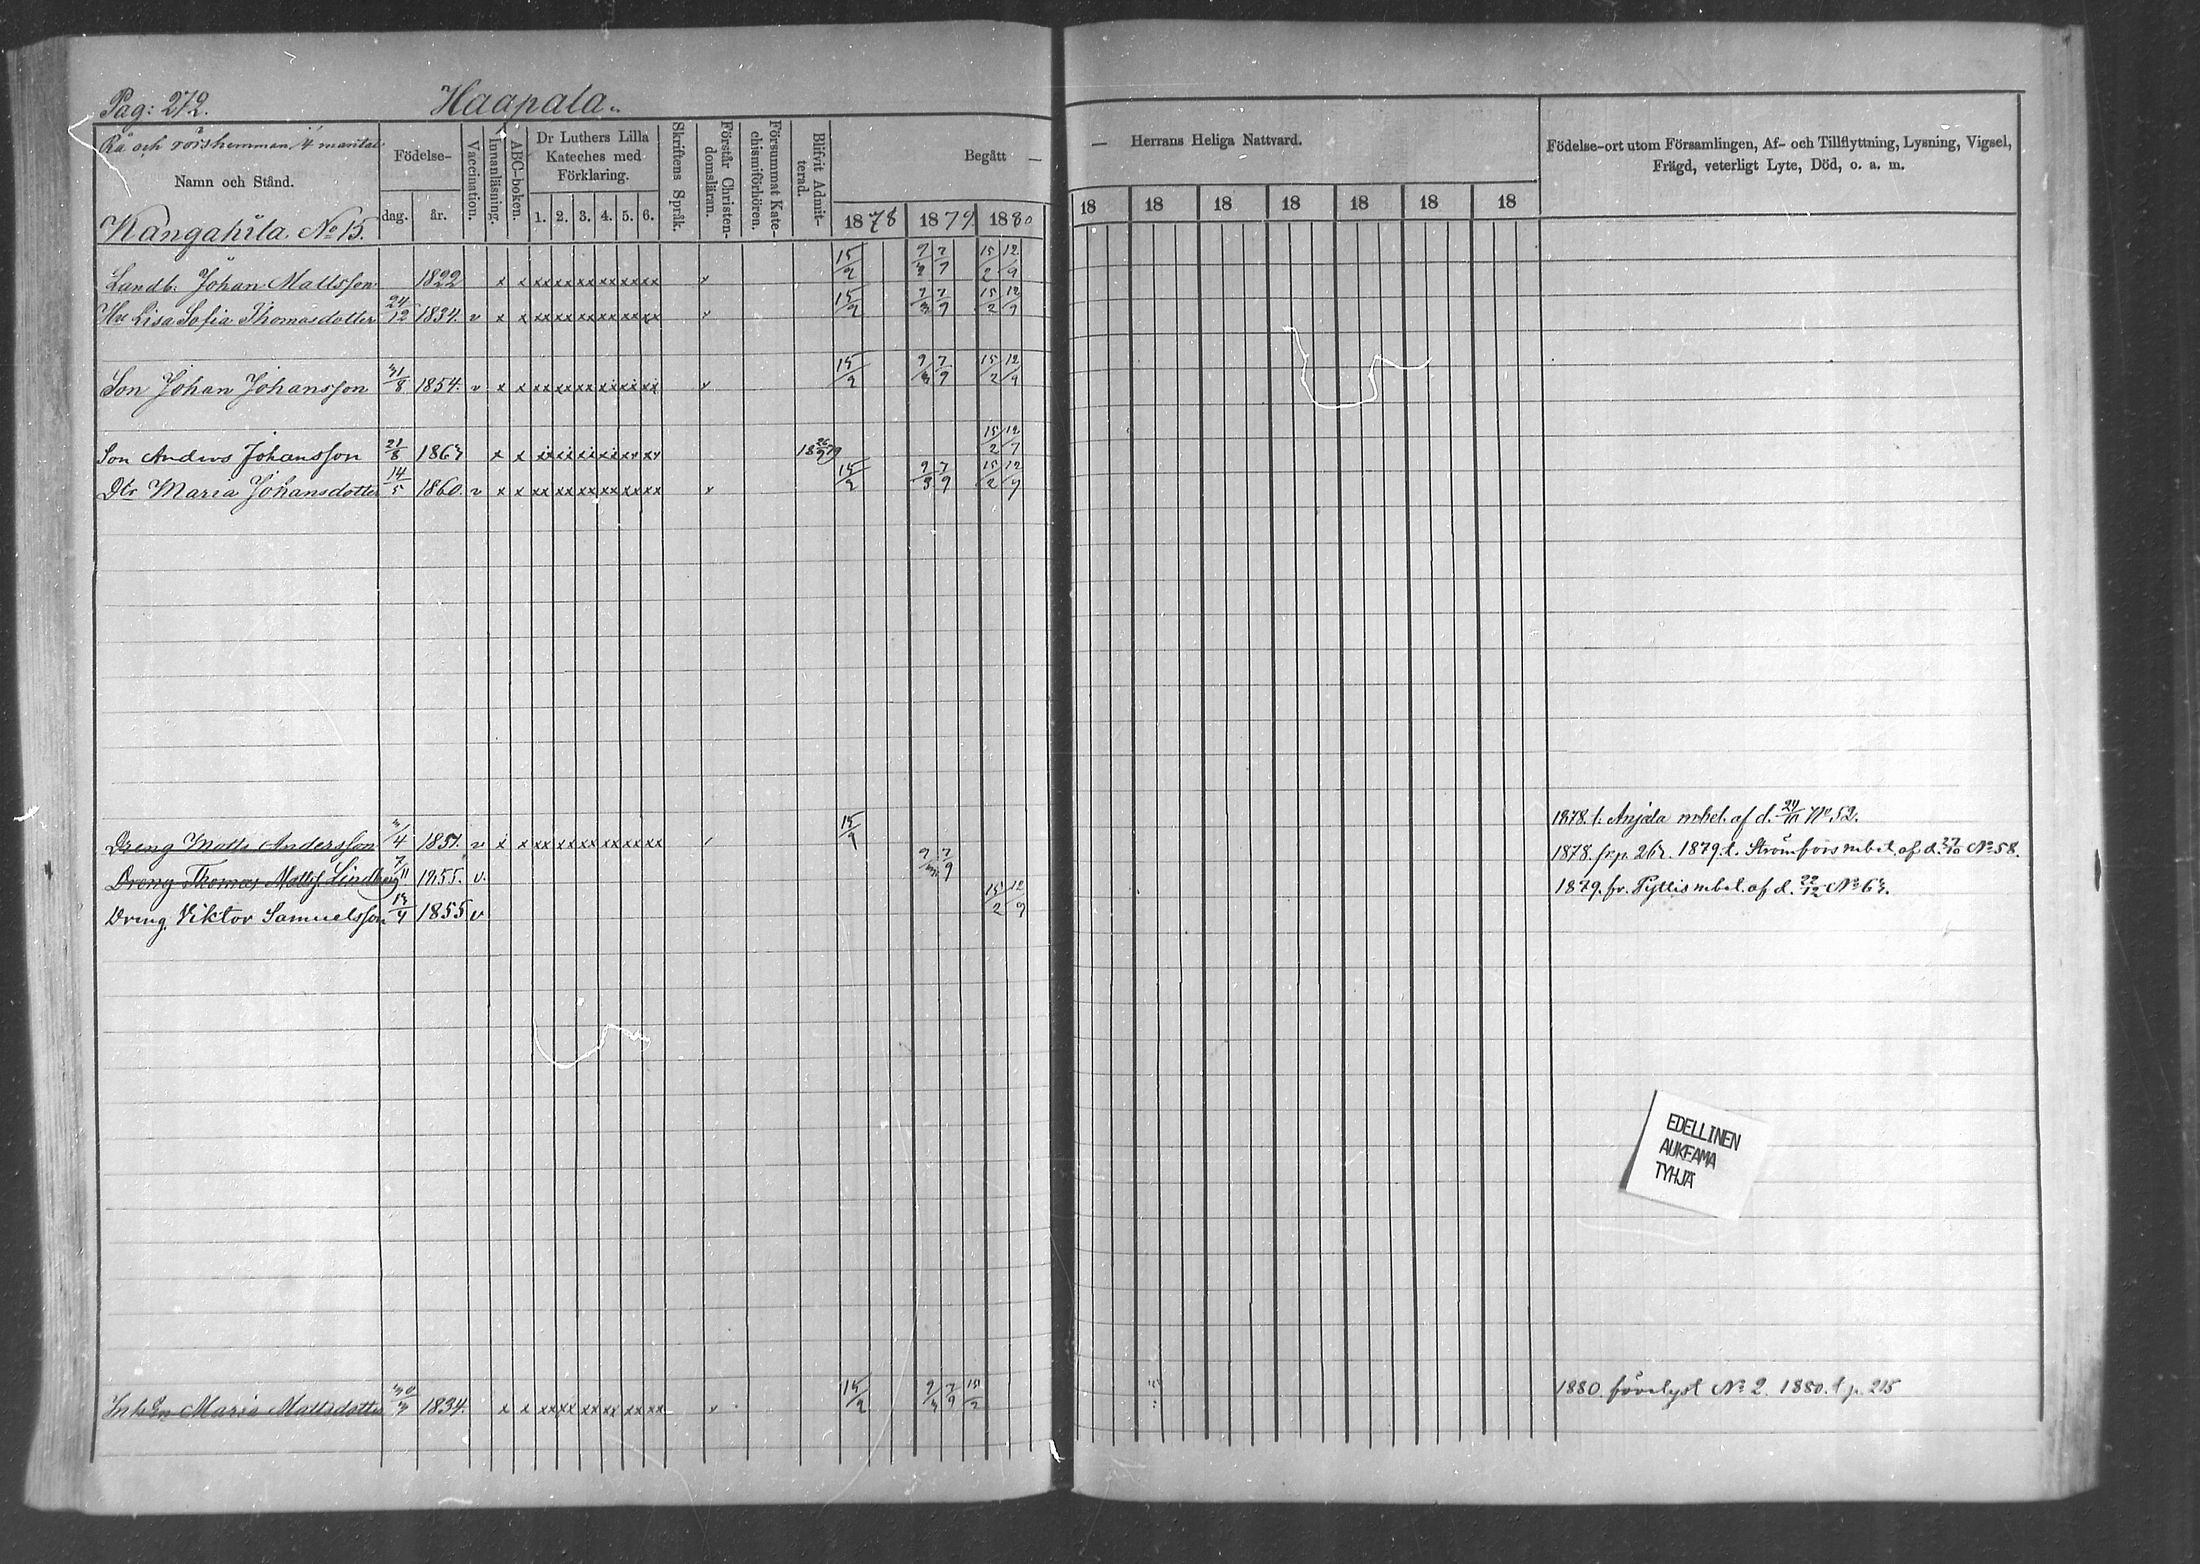 Pag: 272. Haapala.
Rå och rörshemman, 1/4 mantal
Namn och Stånd.
Födelse-
dag. år.
Vaccination.
Innanläsning.
ABC-boken.
Dr Luthers Lilla
Kateches med
Förklaring.
1. 2. 3. 4. 5. 6.
Skriftens Språk.
Förstår Christen-
domsläran.
Försummat Kate-
chismiförhören.
Blifvit Admit-
terad.
Begått —
1878 1879 1880
— Herrans Heliga Nattvard.
18 18 18 18 18 18 18
Födelse-ort utom Församlingen, Af- och Tillflyttning, Lysning, Vigsel,
Frägd, veterligt Lyte, Död, o. a. m.
Kangahila No 15.
Landb. Johan Mattsson 1822 x x xx xx xx xx xx xx v 15/9 9/3 7/9 15/2 12/9
Hu Lisa Sofia Thomasdotter 24/12 1834. v x x xx xx xx xx xx xx v 15/9 9/3 7/9 15/2 12/9
Son Johan Johansson 31/8 1854. v x x xx xx xx xx xx xx v 15/9 9/3 7/9 15/2 12/9
Son Anders Johansson 21/8 1863 x x 15/2 12/9
Dtr Maria Johansdotter 14/5 1860. v x x xx xx xx xx xx xx v 15/9 9/3 7/9 15/2 12/9
Dreng Matts Andersson 1851. v x x xx xx xx xx xx xx 15/9 1878. t. Anjala mbet. af d. No 52.
Dreng Thomas Mattss. Lindberg 7/11 1855. v. 9/3 7/9 1878. fr. p. 263. 1879. t. Strömfors mbet. af d. 27/10 No 58.
Dreng Viktor Samuelsson 13/4 1855 v 15/2 12/9 1879. fr. Pyttis mbet. af d. 22/12 No 63.
EDELLINEN
AUKEAMA
TYHJÄ
Inh. Maria Mattsdotter 30/3 1834. x x xx xx xx xx xx xx v 15/9 9/3 7/9 15/2 1880. förelyst No 2. 1880. t p. 215